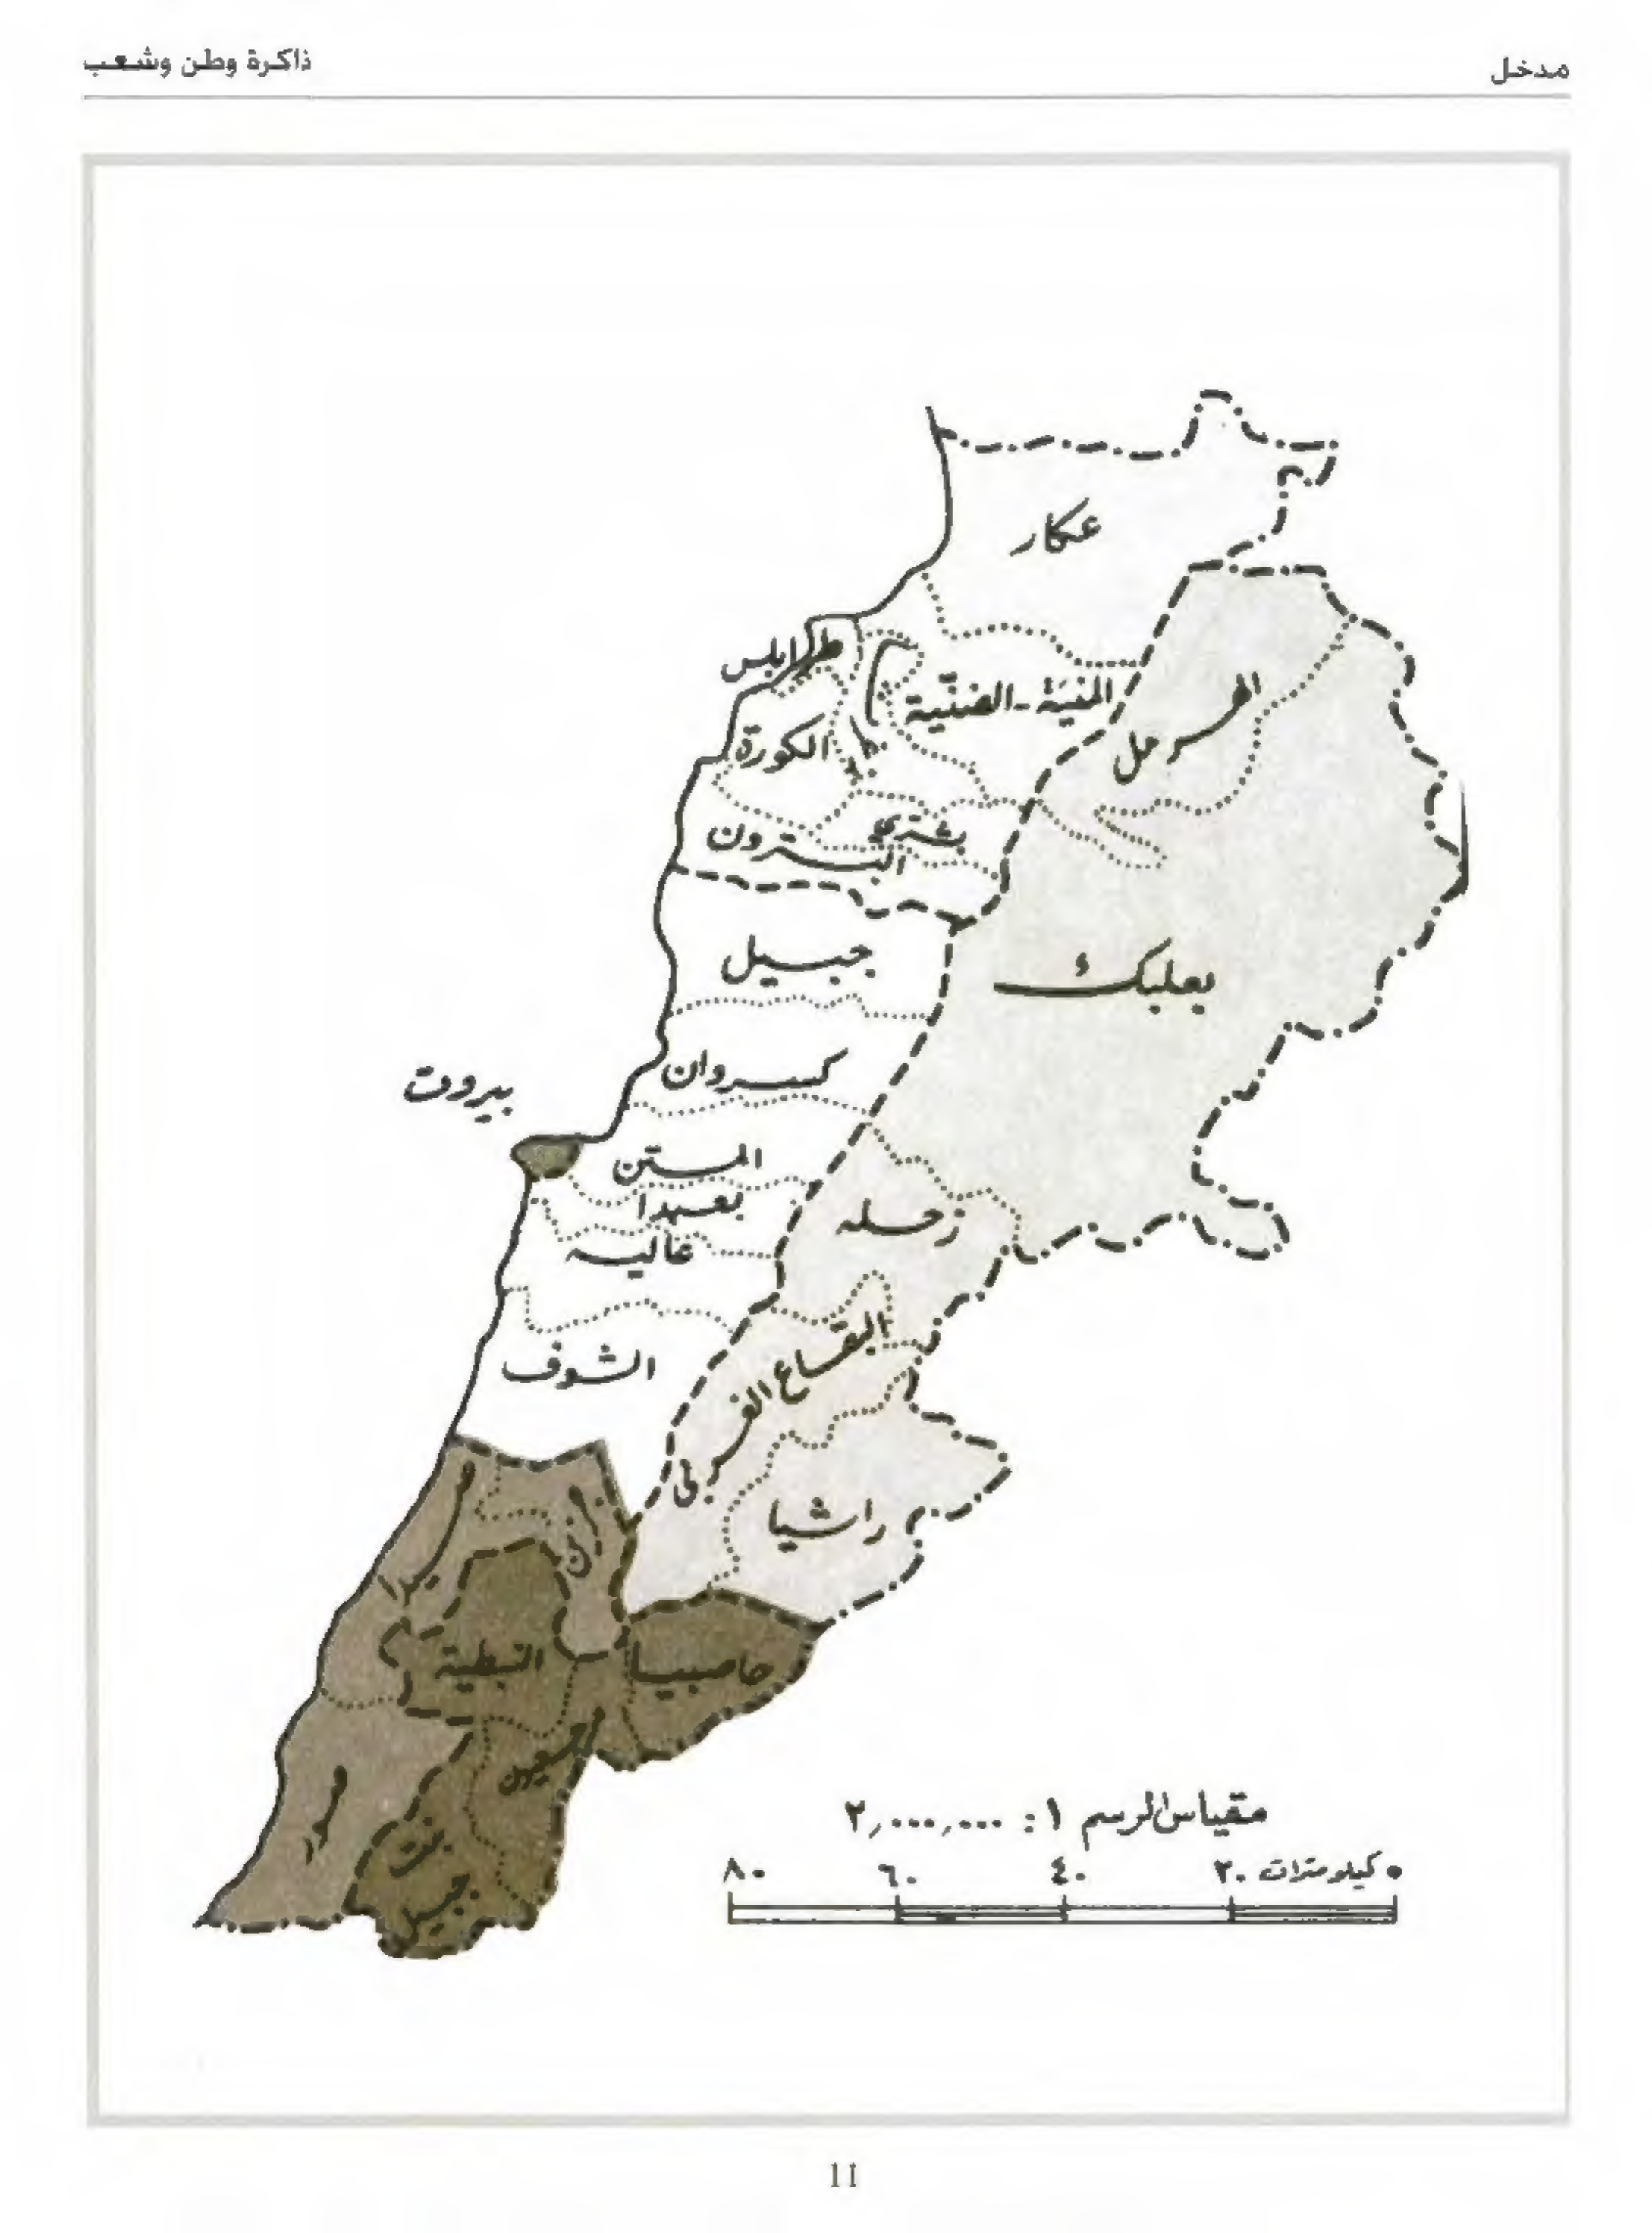 مدخل
ذاكرة وطن وشعب
عكار
طرابلس
المنية - الضنّية
الهرمل
الكورة
بشري
البترون
جبيل
بعلبك
كسروان
بيروت
المتن
بعبدا
عاليه
زحله
الشوف
البقاع الغربي
راشيا
صيدا
جزين
النبطية
حاصبيا
مرجعيون
صور
بنت
جبيل
مقياس الرسم ١ : ٢,٠٠٠,٠٠٠
٠ كيلومترات ٢٠ ٤٠ ٦٠ ٨٠
11